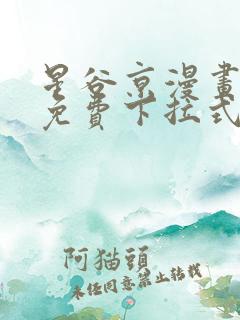 星谷京漫畫
免費下拉式
阿猫頭
未经同意禁止转载